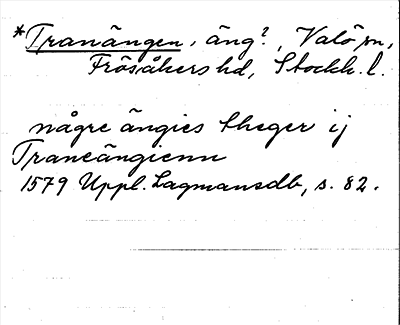 *Tranängen, äng?, Valö sn,
Frösåkers hd, Stockh. l.
någre ängies theger ij
Traneängienn
1579 Uppl. Lagmansdb, s. 82.